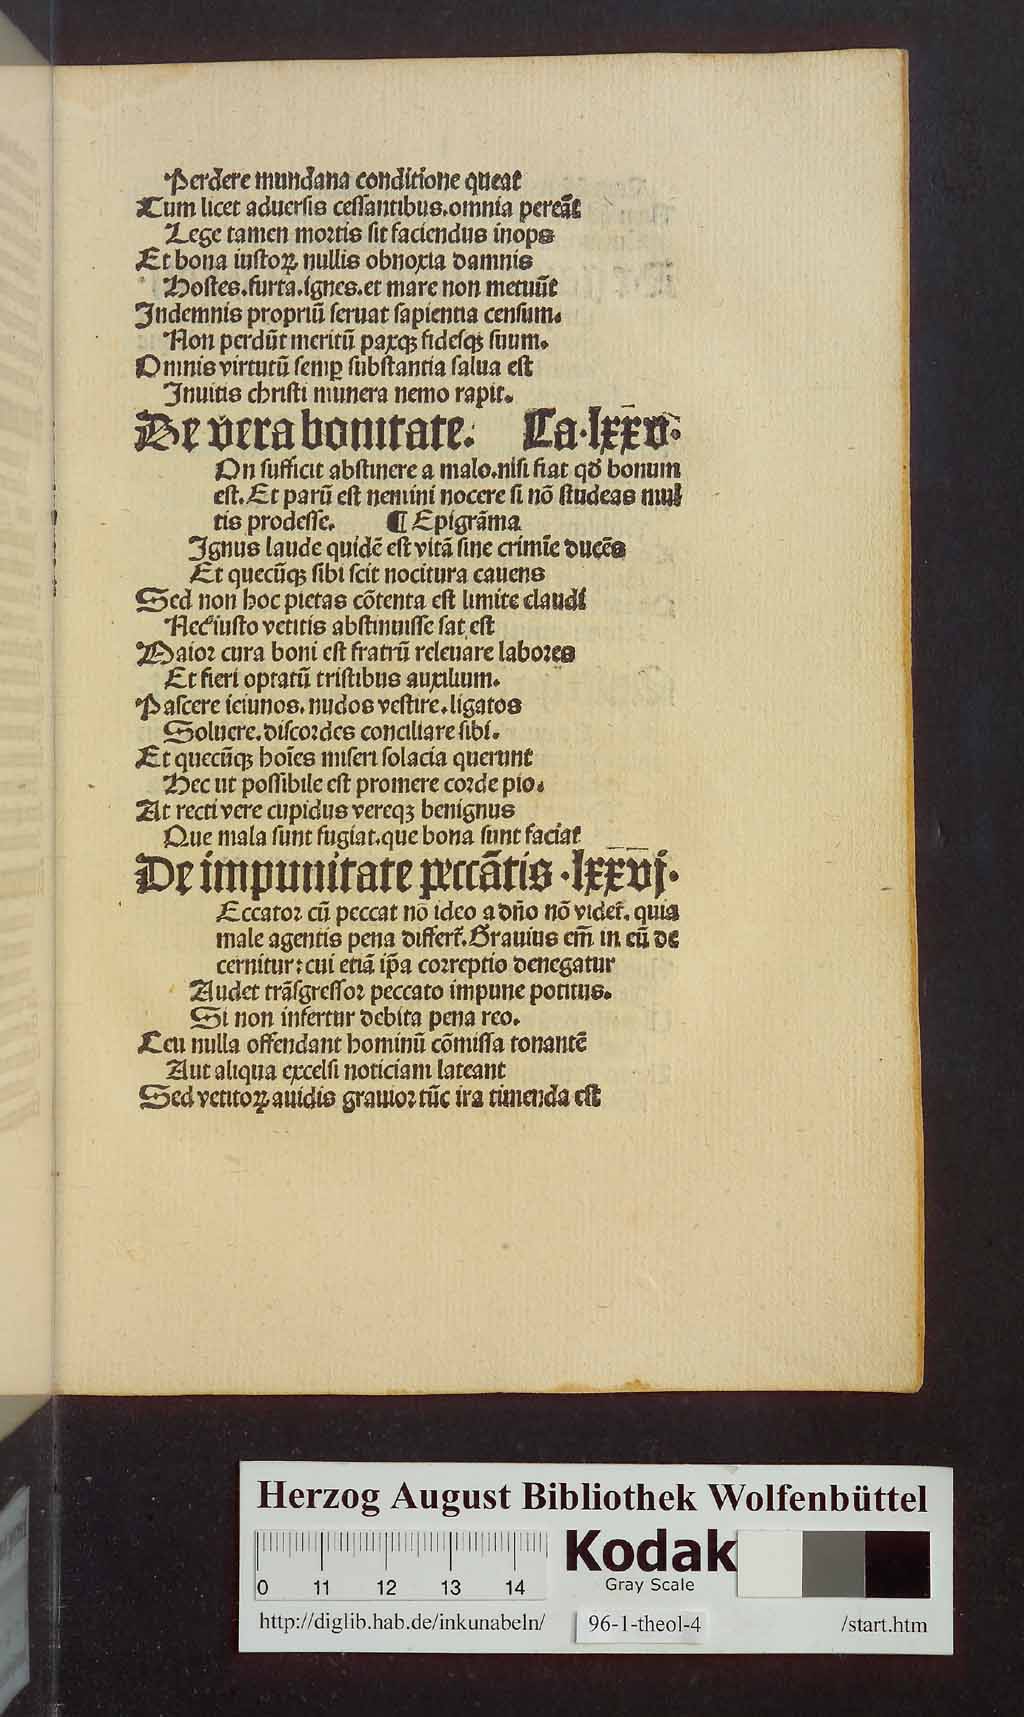 Perdere mundana conditione queat
Cum licet aduersis cessantibus.omnia pereāt
Lege tamen mortis sit faciendus inops
Et bona iustoꝝ nullis obnoxia damnis
Hostes.furta.ignes.et mare non metuūt
Indemnis propriū seruat sapientia censum.
Non perdūt meritū paxqꝫ fidesqꝫ suum.
Omnis virtutū semꝑ substantia salua est
Inuitis christi munera nemo rapit.
De vera bonitate. Ca.lxxv.
On sufficit abstinere a malo.nisi fiat qd̄ bonum
est.Et parū est nemini nocere si nō studeas mul
tis prodesse. ¶ Epigrāma
Ignus laude quidē est vitā sine crimīe ducēs
Et quecūqꝫ sibi scit nocitura cauens
Sed non hoc pietas cōtenta est limite claudi
Nec iusto vetitis abstinuisse sat est
Maior cura boni est fratrū releuare labores
Et fieri optatū tristibus auxilium.
Pascere ieiunos.nudos vestire.ligatos
Soluere.discordes conciliare sibi.
Et quecūqꝫ hoīes miseri solacia querunt
Hec ut possibile est promere corde pio.
At recti vere cupidus vereqꝫ benignus
Que mala sunt fugiat.que bona sunt faciat
De impunitate peccātis.lxxvj.
Eccator cū peccat nō ideo a dn̄o nō videt᷑. quia
male agentis pena differt᷑.Grauius em̄ in eū de
cernitur:cui etiā ip̄a correptio denegatur
Audet trāsgressor peccato impune potitus.
Si non infertur debita pena reo.
Ceu nulla offendant hominū cōmissa tonantē
Aut aliqua excelsi noticiam lateant
Sed vetitoꝝ auidis grauior tūc ira timenda est
Herzog August Bibliothek Wolfenbüttel
Kodak
Gray Scale
0 11 12 13 14
http://diglib.hab.de/inkunabeln/ 96-1-theol-4 /start.htm